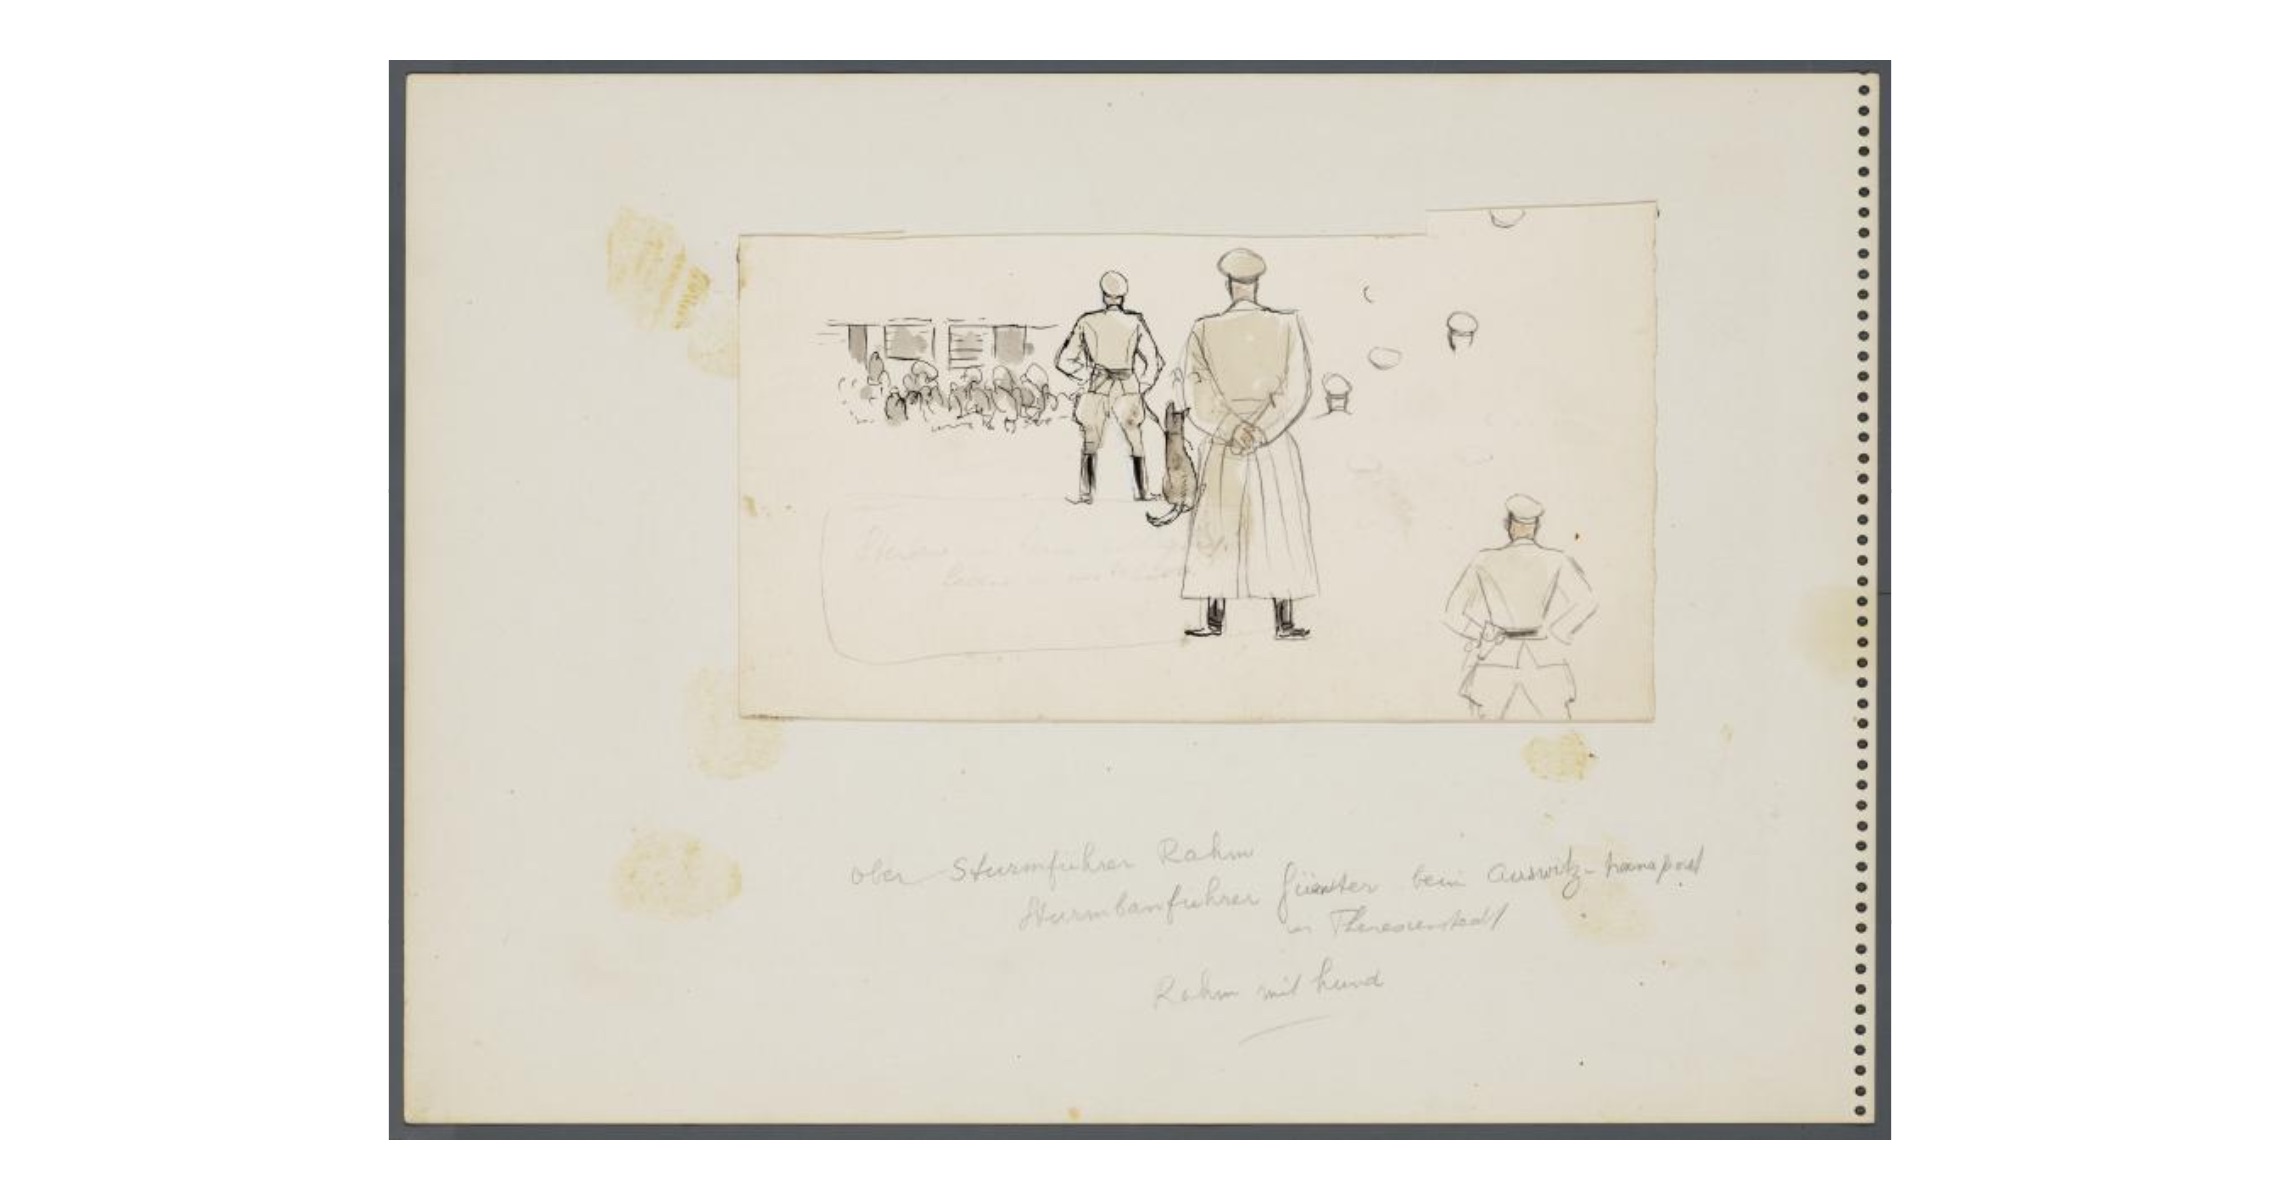 Ober Sturmführer Rahm
Sturmbanfuhrer Günter beim Auswitz-transport
in Theresienstadt
Rahm mit hund